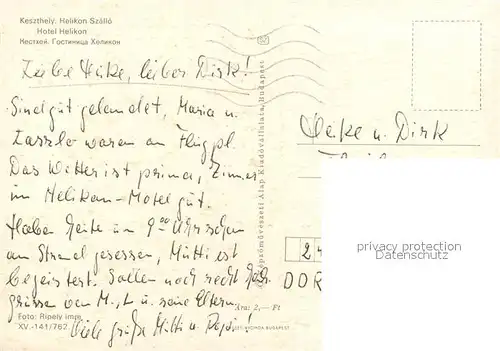 Keszthely. Helikon Szálló
Hotel Helikon
Кестхей. Гостиница Хеликон
Liebe Heike, lieber Dirk!
Sind gut gelandet, Maria u.
Laszlo waren am Flugpl.
Das Wetter ist prima, Zimmer
im Helikon-Motel gut.
Haben heute um 9.00 Uhr schon
am Strand gesessen, Mutti ist
begeistert. Sollen noch recht herzl.
grüssen von M., L u. seine Eltern.
Viele grüße Mutti u. Papi!
Foto: Ripely Imre
XV.-141/762
Képzőművészeti Alap Kiadóvállalata, Budapest
Ára: 2,— Ft
Heike u. Dirk
privacy protection
Datenschutz
24
DDR